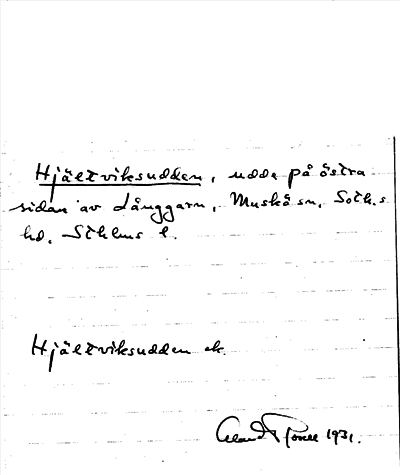 Hjältviksudden, udde på östra
sidan av Långgarn, Muskö sn, Soth.s
hd, Sthlms l.
Hjältviksudden ek.
1931.